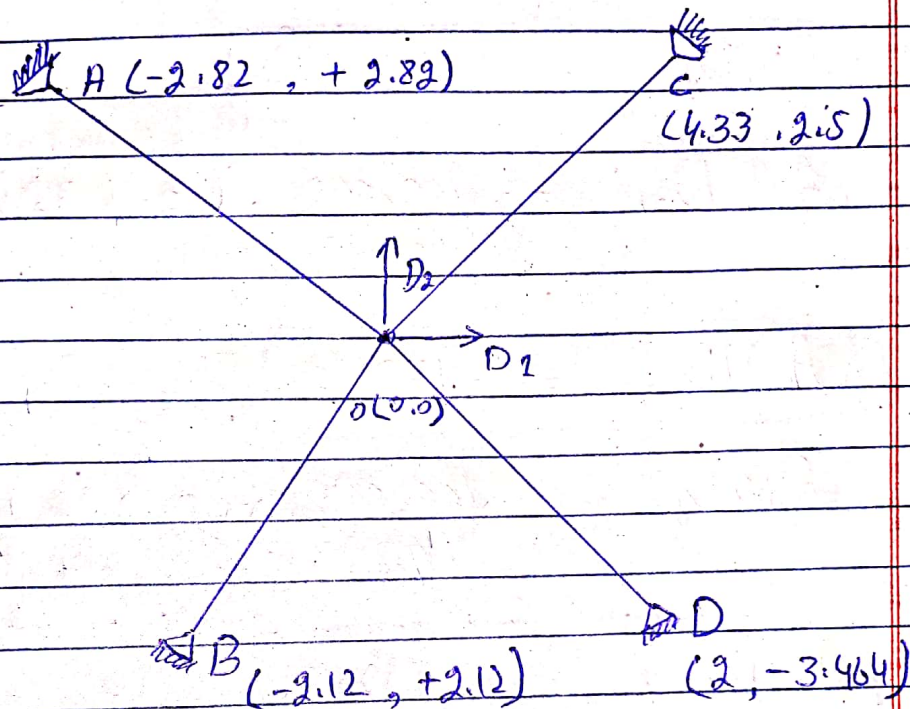 A (-2.82 , +2.82)
C
(4.33 , 2.5)
D2
D1
O(0.0)
B
(-2.12 , +2.12)
D
(2 , -3.464)